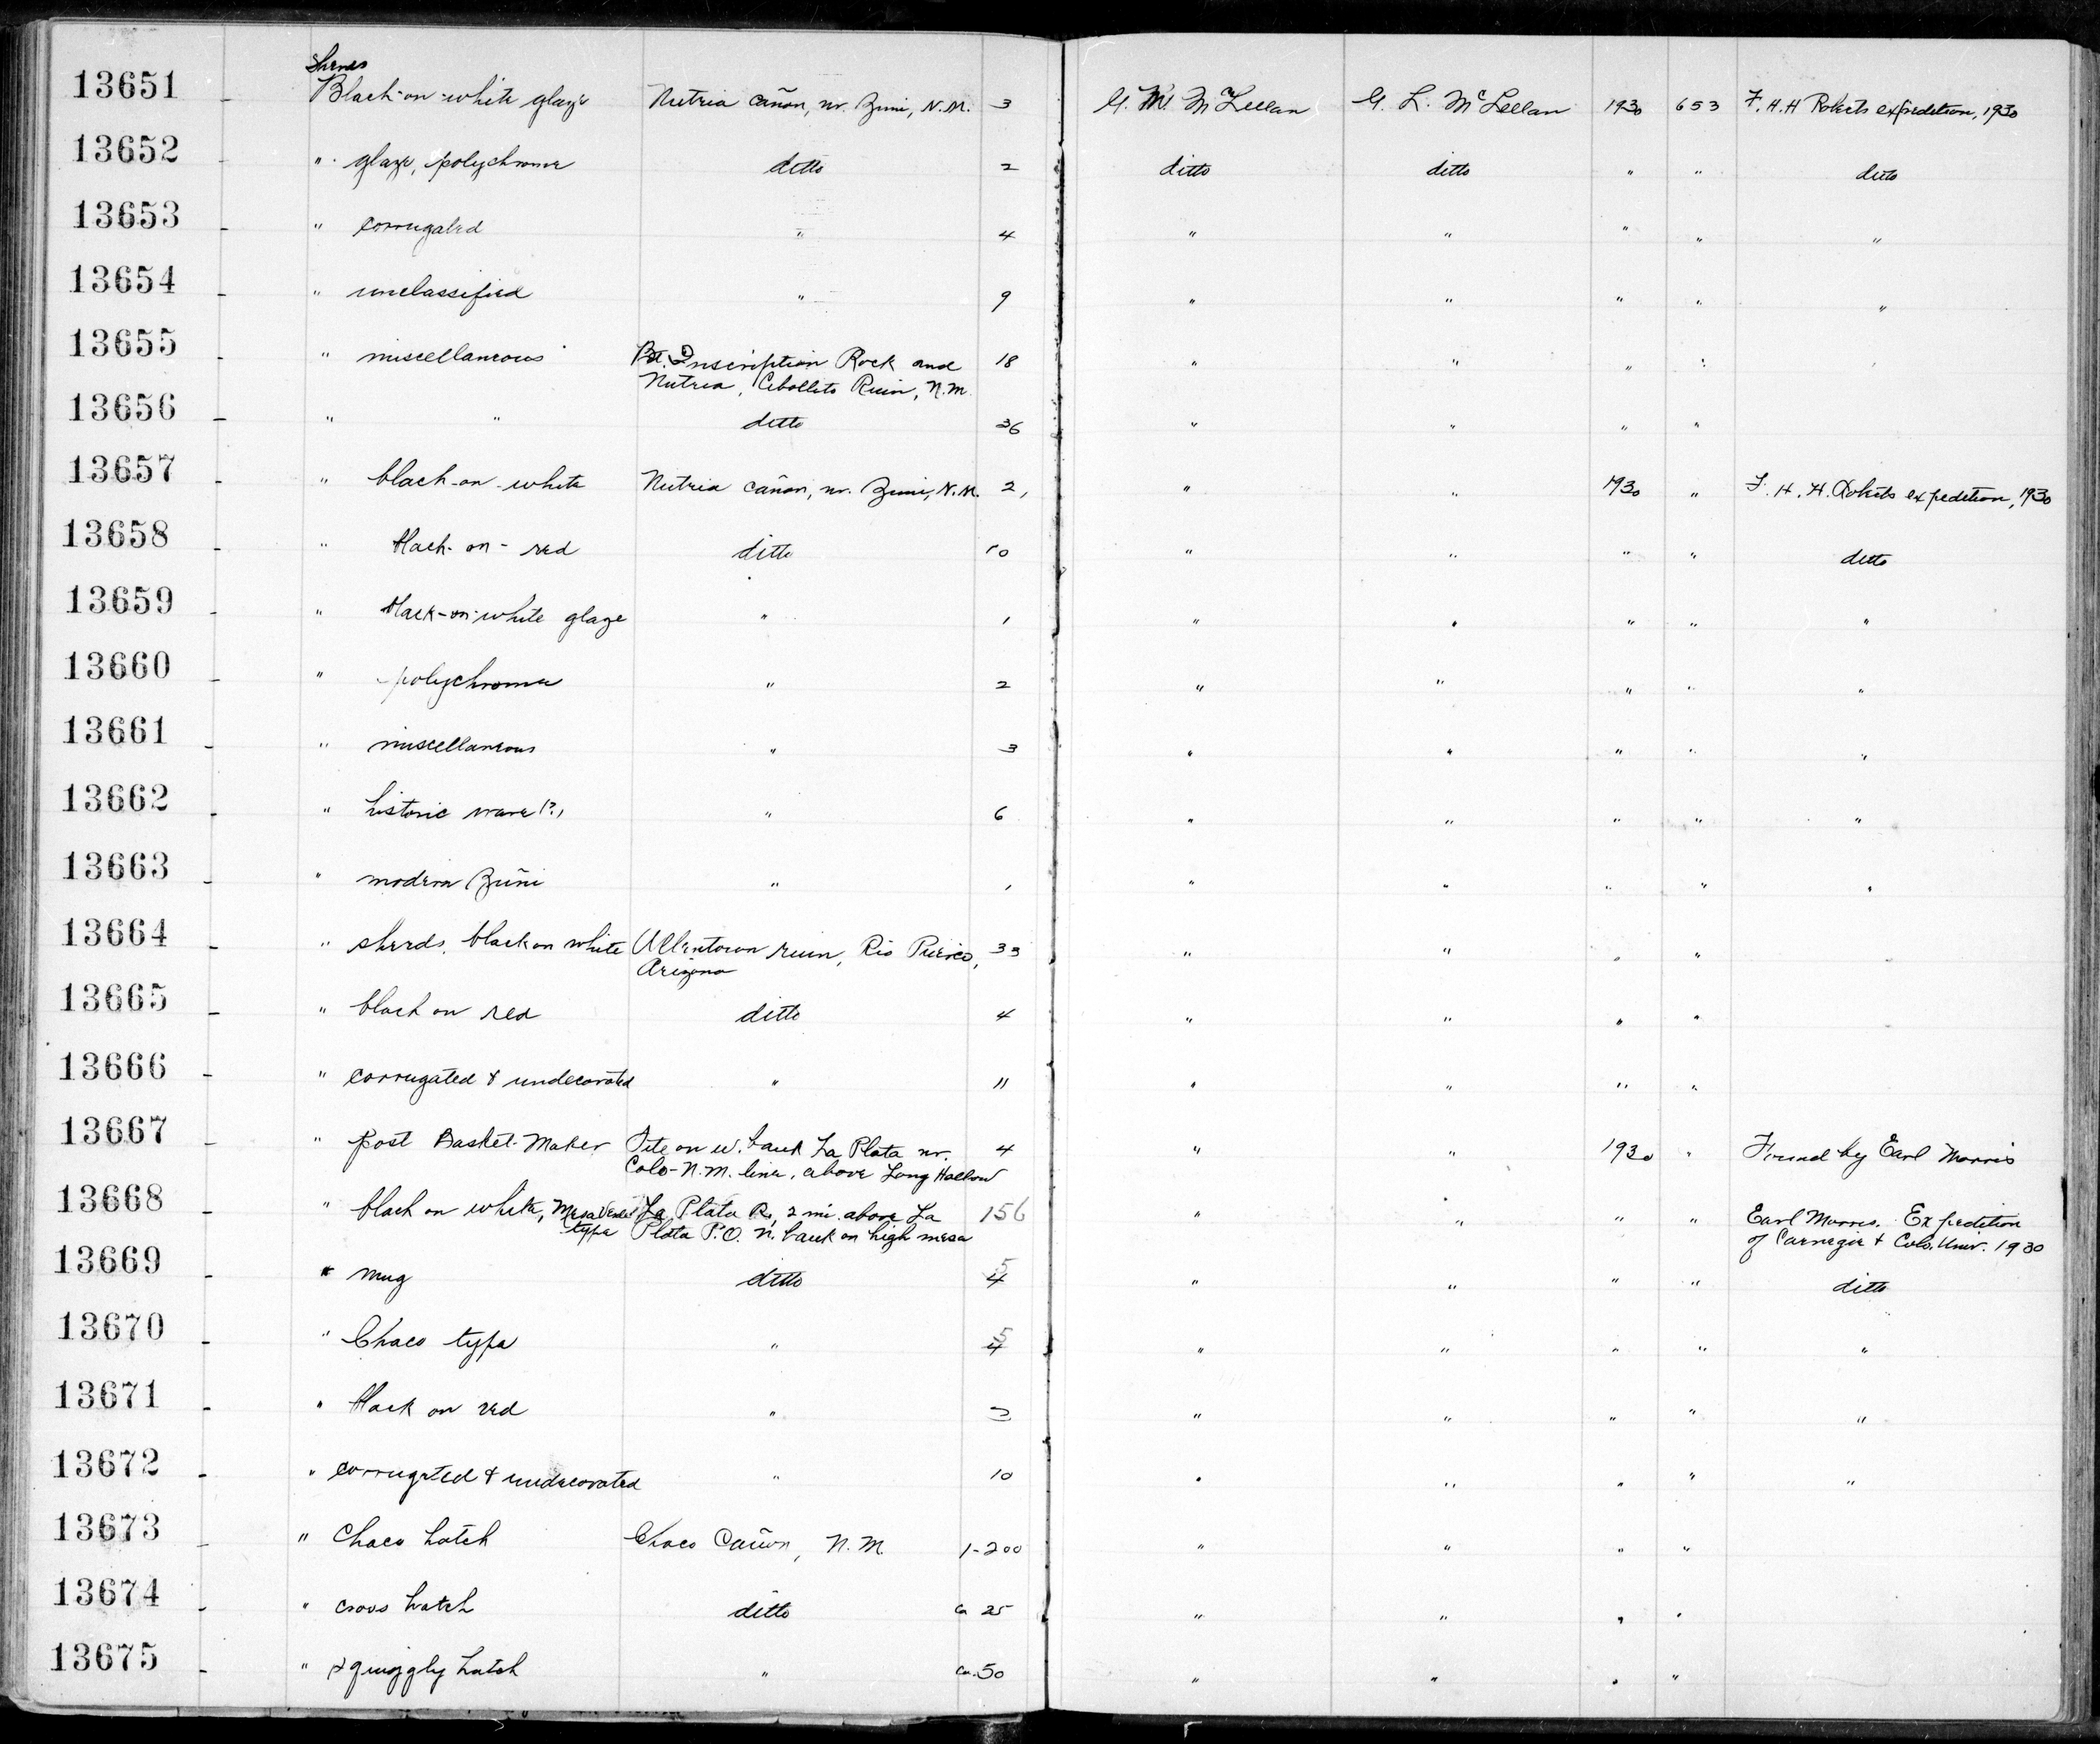 Sherds
13651 - Black-on-white glaze Nutria cañon, nr. Zuni, N.M. 3 G. M. McLellan G. L. McLellan 1930 653 F. H. H Roberts expedition, 1930
13652 - " glaze, polychrome ditto 2 ditto ditto " " ditto
13653 - " corrugated " 4 " " " " "
13654 - " unclassified " 9 " " " " "
13655 - " miscellaneous Bt. Inscription Rock and 18 " " " "
Nutria, Cebollito Ruin, N.M.
13656 - " " ditto 36 " " " "
13657 - " black-on-white Nutria cañon, nr. Zuni, N.M. 2, " " 1930 " F. H. H. Roberts expedition, 1930
13658 - " black-on-red ditto 10 " " " " ditto
13659 - " black-on-white glaze " 1 " " " " "
13660 - " polychrome " 2 " " " " "
13661 - " miscellaneous " 3 " " " " "
13662 - " historic ware (?) " 6 " " " " "
13663 - " modern Zuñi " 1 " " " " "
13664 - " sherds, black on white Allentown ruin, Rio Puerco, 33 " " " "
Arizona
13665 - " black on red ditto 4 " " " "
13666 - " corrugated & undecorated " 11 " " " "
13667 - " post Basket-Maker Site on W. bank La Plata nr. 4 " " 1930 " Found by Earl Morris
Colo-N.M. line, above Long Hollow
13668 - " black on white, Mesa Verde La Plata R., 2 mi. above La 156 " " " " Earl Morris. Expedition
type Plata P.O. N. bank on high mesa of Carnegie & Colo. Univ. 1930
13669 - " mug ditto 5 4 " " " " ditto
13670 - " Chaco type " 5 4 " " " " "
13671 - " black on red " 2 " " " " "
13672 - " corrugated & undecorated " 10 " " " " "
13673 - " Chaco hatch Chaco Cañon, N.M. 1-200 " " " "
13674 - " cross hatch ditto ca 25 " " " "
13675 - " squiggly hatch " ca. 50 " " " "